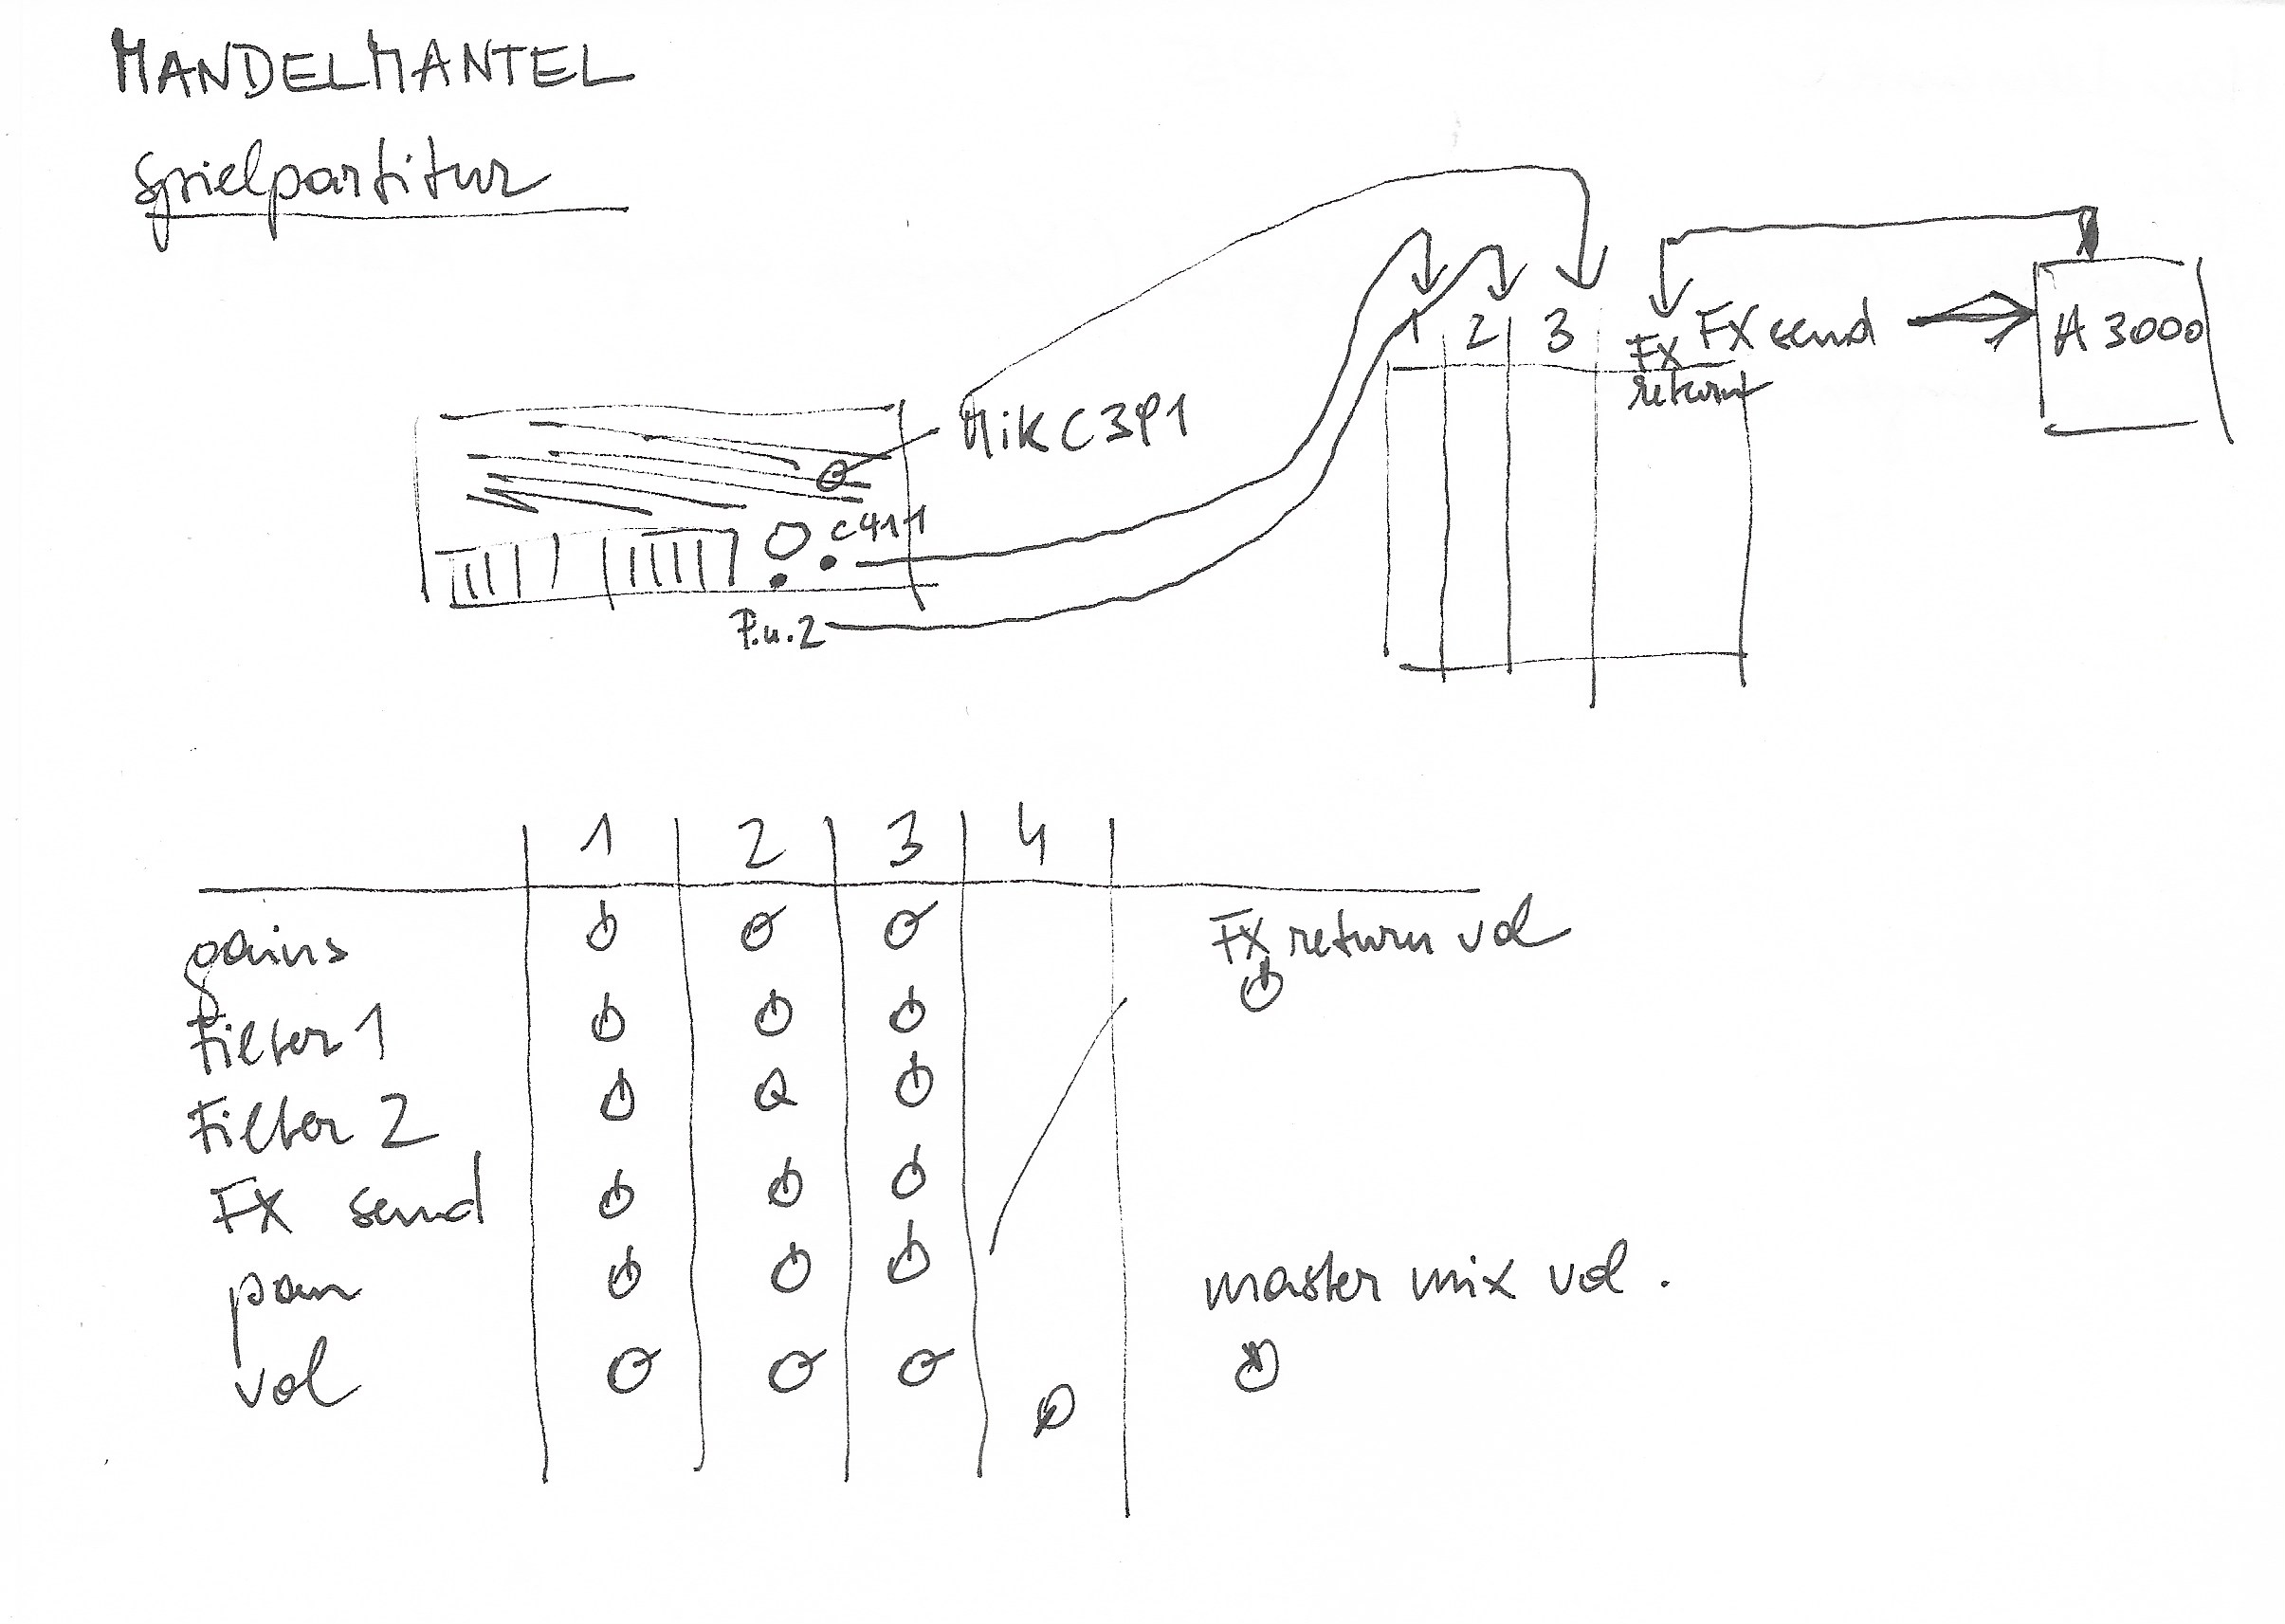 MANDELMANTEL
Spielpartitur
1 2 3 FX send
FX
return
A 3000
Mik C3P1
C411
P.u.2
1 2 3 4
gains
FX return vol
Filter 1
Filter 2
FX send
pan
master mix vol.
vol